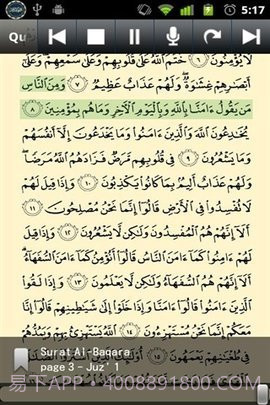 5:17
Qu
لَا يُؤْمِنُونَ ٦ خَتَمَ ٱللَّهُ عَلَىٰ قُلُوبِهِمْ وَعَلَىٰ سَمْعِهِمْ وَعَلَىٰ
أَبْصَٰرِهِمْ غِشَٰوَةٌ وَلَهُمْ عَذَابٌ عَظِيمٌ ٧ وَمِنَ ٱلنَّاسِ
مَن يَقُولُ ءَامَنَّا بِٱللَّهِ وَبِٱلْيَوْمِ ٱلْءَاخِرِ وَمَا هُم بِمُؤْمِنِينَ ٨
يُخَٰدِعُونَ ٱللَّهَ وَٱلَّذِينَ ءَامَنُوا۟ وَمَا يَخْدَعُونَ إِلَّآ أَنفُسَهُمْ
وَمَا يَشْعُرُونَ ٩ فِى قُلُوبِهِم مَّرَضٌ فَزَادَهُمُ ٱللَّهُ مَرَضًا
وَلَهُمْ عَذَابٌ أَلِيمٌۢ بِمَا كَانُوا۟ يَكْذِبُونَ ١٠ وَإِذَا قِيلَ لَهُمْ
لَا تُفْسِدُوا۟ فِى ٱلْأَرْضِ قَالُوٓا۟ إِنَّمَا نَحْنُ مُصْلِحُونَ ١١
أَلَآ إِنَّهُمْ هُمُ ٱلْمُفْسِدُونَ وَلَٰكِن لَّا يَشْعُرُونَ ١٢ وَإِذَا قِيلَ
لَهُمْ ءَامِنُوا۟ كَمَآ ءَامَنَ ٱلنَّاسُ قَالُوٓا۟ أَنُؤْمِنُ كَمَآ ءَامَنَ ٱلسُّفَهَآءُ
أَلَآ إِنَّهُمْ هُمُ ٱلسُّفَهَآءُ وَلَٰكِن لَّا يَعْلَمُونَ ١٣ وَإِذَا لَقُوا۟
ٱلَّذِينَ ءَامَنُوا۟ قَالُوٓا۟ ءَامَنَّا وَإِذَا خَلَوْا۟ إِلَىٰ شَيَٰطِينِهِمْ قَالُوٓا۟ إِنَّا
مَعَكُمْ إِنَّمَا نَحْنُ مُسْتَهْزِءُونَ ١٤ ٱللَّهُ يَسْتَهْزِئُ بِهِمْ وَيَمُدُّهُمْ
فِى طُغْيَٰنِهِمْ يَعْمَهُونَ ١٥
Surat Al-Baqara
page 3 - Juz' 1
易下APP 4008891800.com